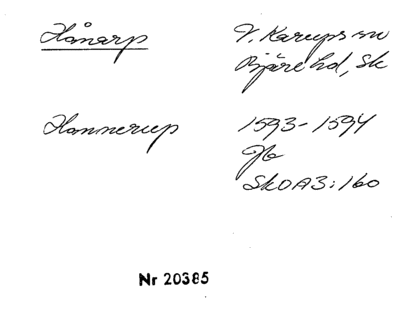 Hånarp
V. Karups sn
Bjäre hd, Sk
Hannerup
1593-1594
Jb
SkOA3:160
Nr 20385